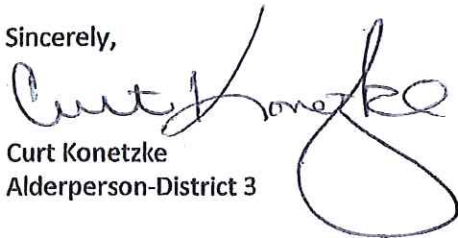 Sincerely,
Curt Konetzke
Curt Konetzke
Alderperson-District 3